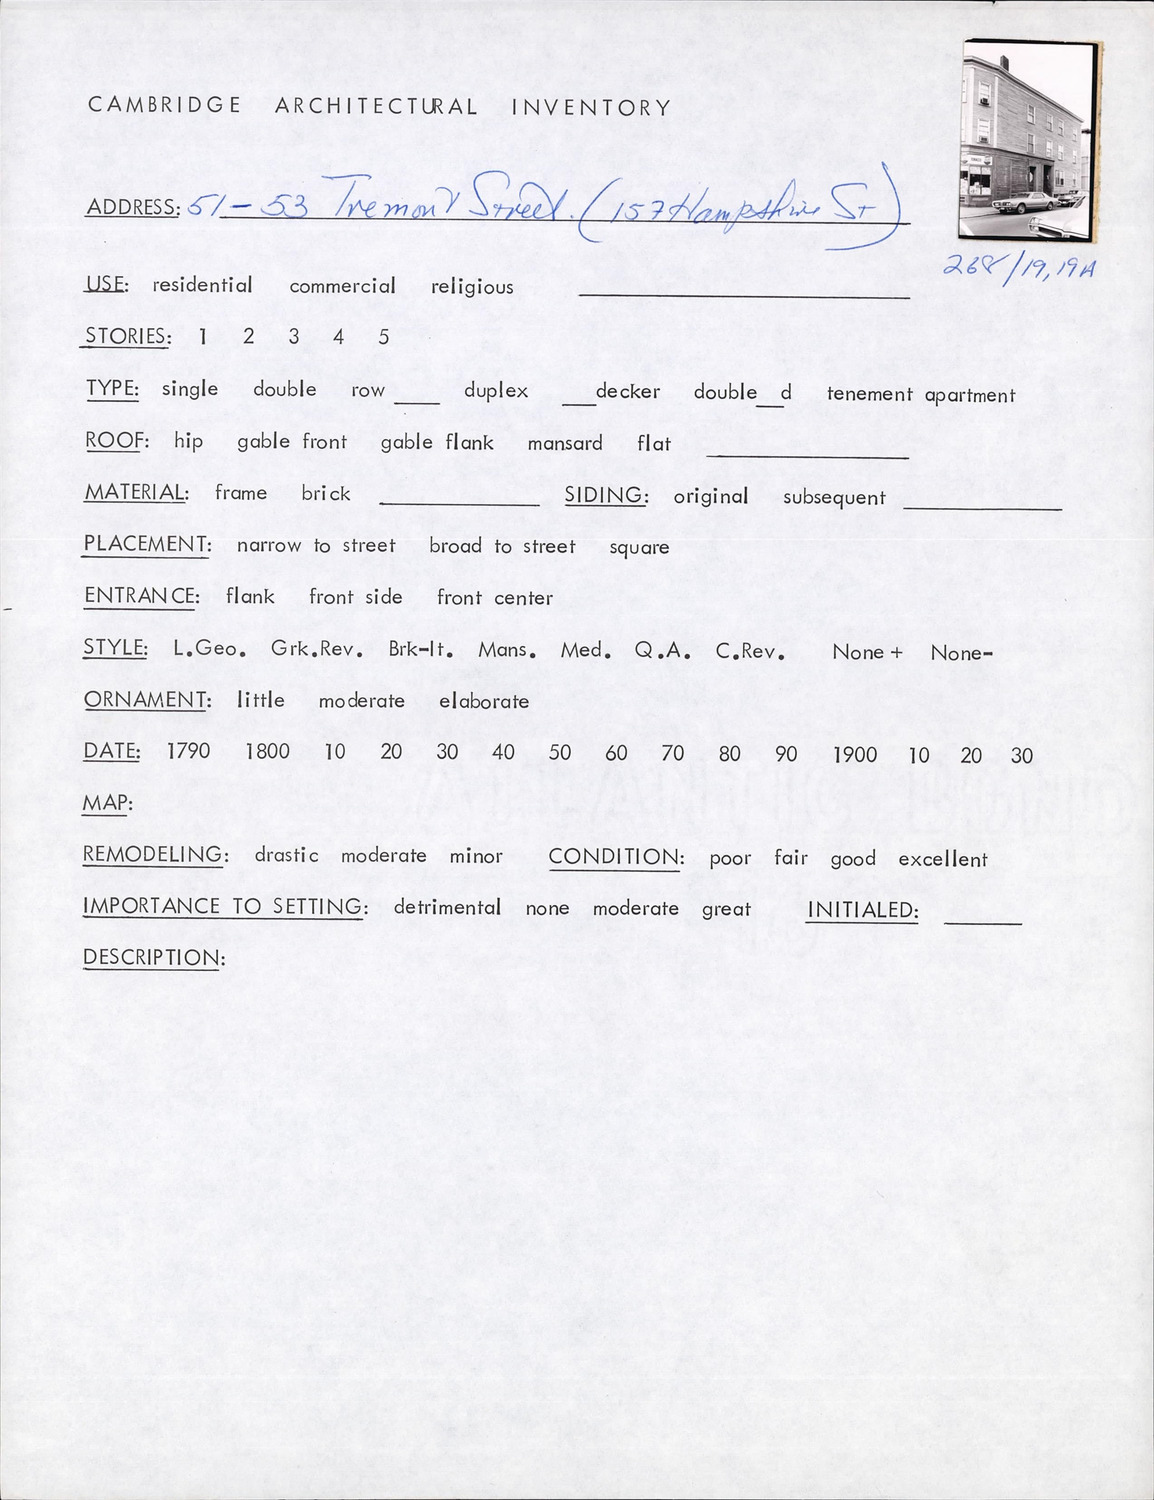 CAMBRIDGE ARCHITECTURAL INVENTORY
ADDRESS: 51-53 Tremont Street. (157 Hampshire St)
268/19, 19A
USE: residential commercial religious ____
STORIES: 1 2 3 4 5
TYPE: single double row ____ duplex ___decker double__d tenement apartment
ROOF: hip gable front gable flank mansard flat ____
MATERIAL: frame brick ____ SIDING: original subsequent ____
PLACEMENT: narrow to street broad to street square
ENTRANCE: flank front side front center
STYLE: L.Geo. Grk.Rev. Brk-It. Mans. Med. Q.A. C.Rev. None+ None-
ORNAMENT: little moderate elaborate
DATE: 1790 1800 10 20 30 40 50 60 70 80 90 1900 10 20 30
MAP:
REMODELING: drastic moderate minor CONDITION: poor fair good excellent
IMPORTANCE TO SETTING: detrimental none moderate great INITIALED: ____
DESCRIPTION: